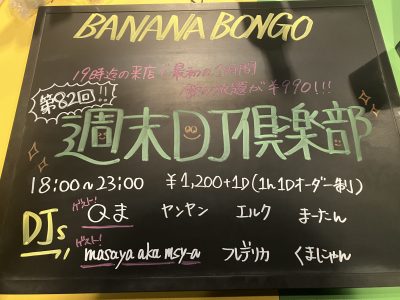 BANANA BONGO
19時迄の来店で最初の1時間
飲み放題が¥990!!!
第82回!!
週末DJ倶楽部
18:00~23:00 ¥1,200+1D(1h1Dオーダー制)
DJs
ゲスト!
Qま ヤンヤン エルク まーたん
ゲスト!
masaya aka msy-a フレデリカ くましゃん